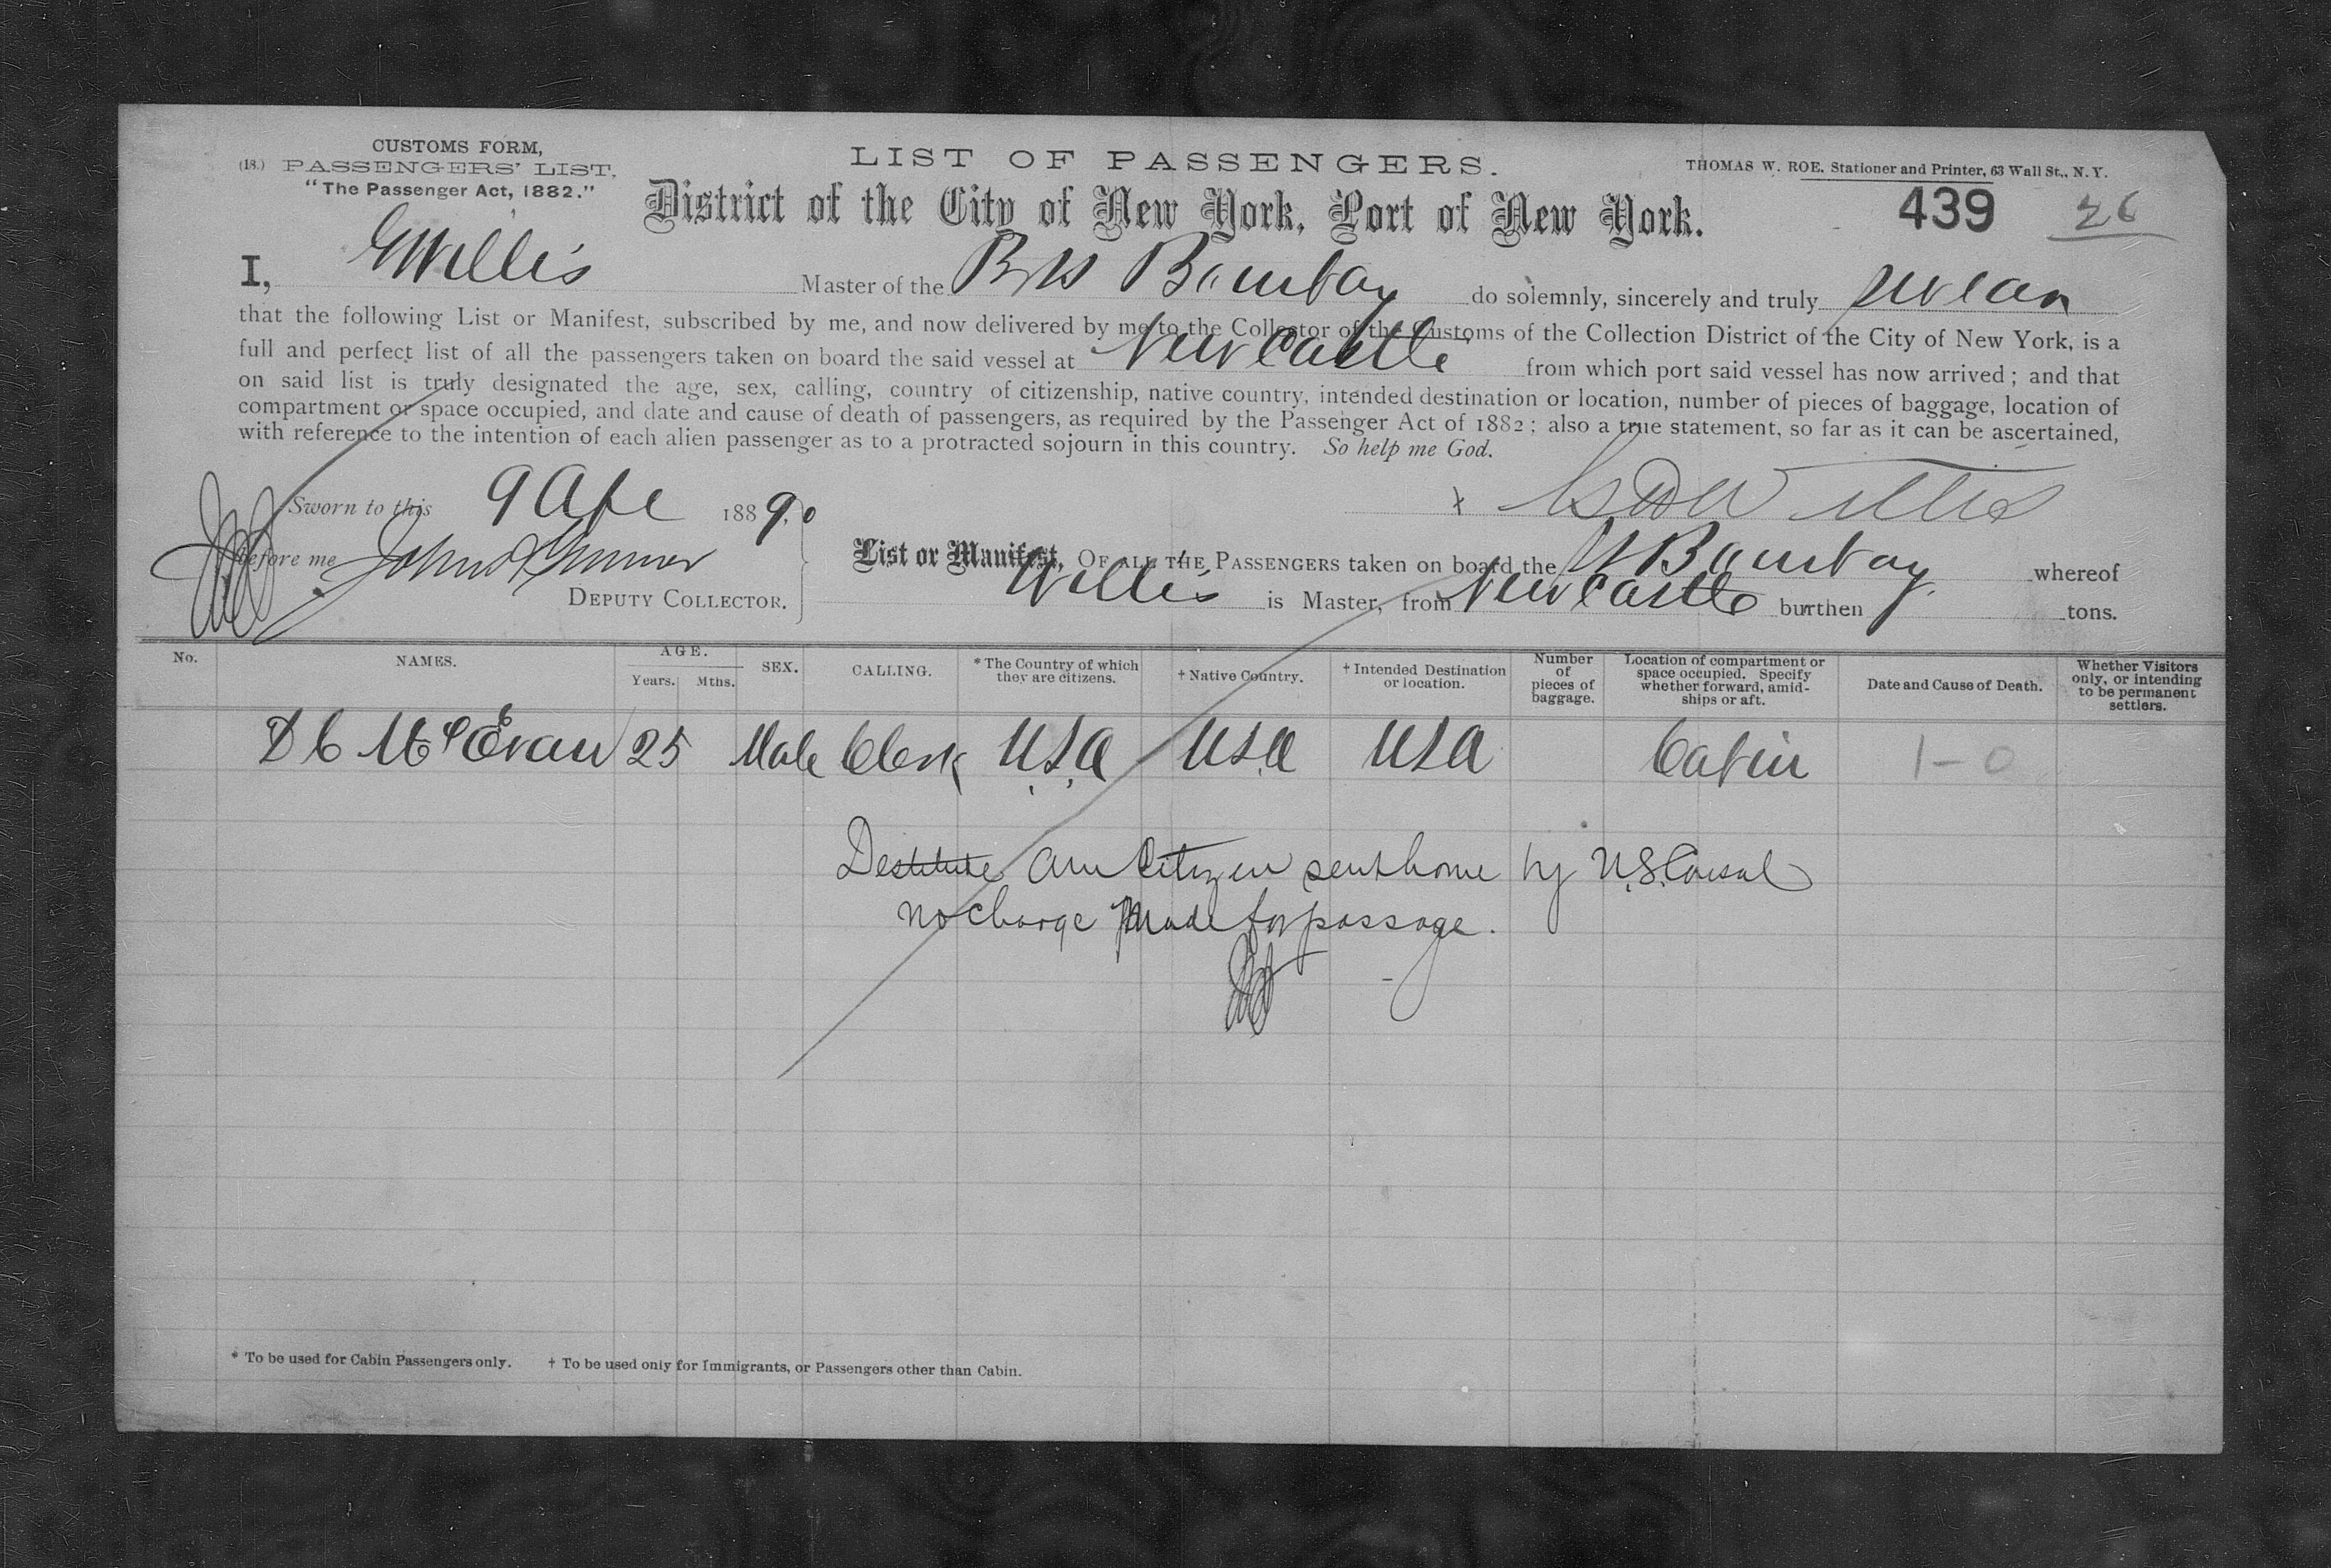 CUSTOMS FORM,
(18.) PASSENGERS' LIST.
"The Passenger Act, 1882."
LIST OF PASSENGERS.
THOMAS W. ROE, Stationer and Printer, 63 Wall St., N. Y.
District of the City of New York, Port of New York.
439 26
I, Willis Master of the Bombay do solemnly, sincerely and truly swear
that the following List or Manifest, subscribed by me, and now delivered by me to the Collector of the Customs of the Collection District of the City of New York, is a
full and perfect list of all the passengers taken on board the said vessel at New Castle from which port said vessel has now arrived; and that
on said list is truly designated the age, sex, calling, country of citizenship, native country, intended destination or location, number of pieces of baggage, location of
compartment or space occupied, and date and cause of death of passengers, as required by the Passenger Act of 1882; also a true statement, so far as it can be ascertained,
with reference to the intention of each alien passenger as to a protracted sojourn in this country. So help me God.
Sworn to this 9 Ap 1889.0
x Willis
Before me John
DEPUTY COLLECTOR.
List or Manifest, OF ALL THE PASSENGERS taken on board the Bombay whereof
Willis is Master, from New Castle burthen tons.
No. NAMES. AGE. Years. Mths. SEX. CALLING. * The Country of which they are citizens. † Native Country. † Intended Destination or location. Number of pieces of baggage. Location of compartment or space occupied. Specify whether forward, amidships or aft. Date and Cause of Death. Whether Visitors only, or intending to be permanent settlers.
D C McEvan 25 Male Clerk USA USA USA Cabin 1-0
Destitute Am Citizen sent home by U.S. Consul
no charge made for passage.
* To be used for Cabin Passengers only. † To be used only for Immigrants, or Passengers other than Cabin.